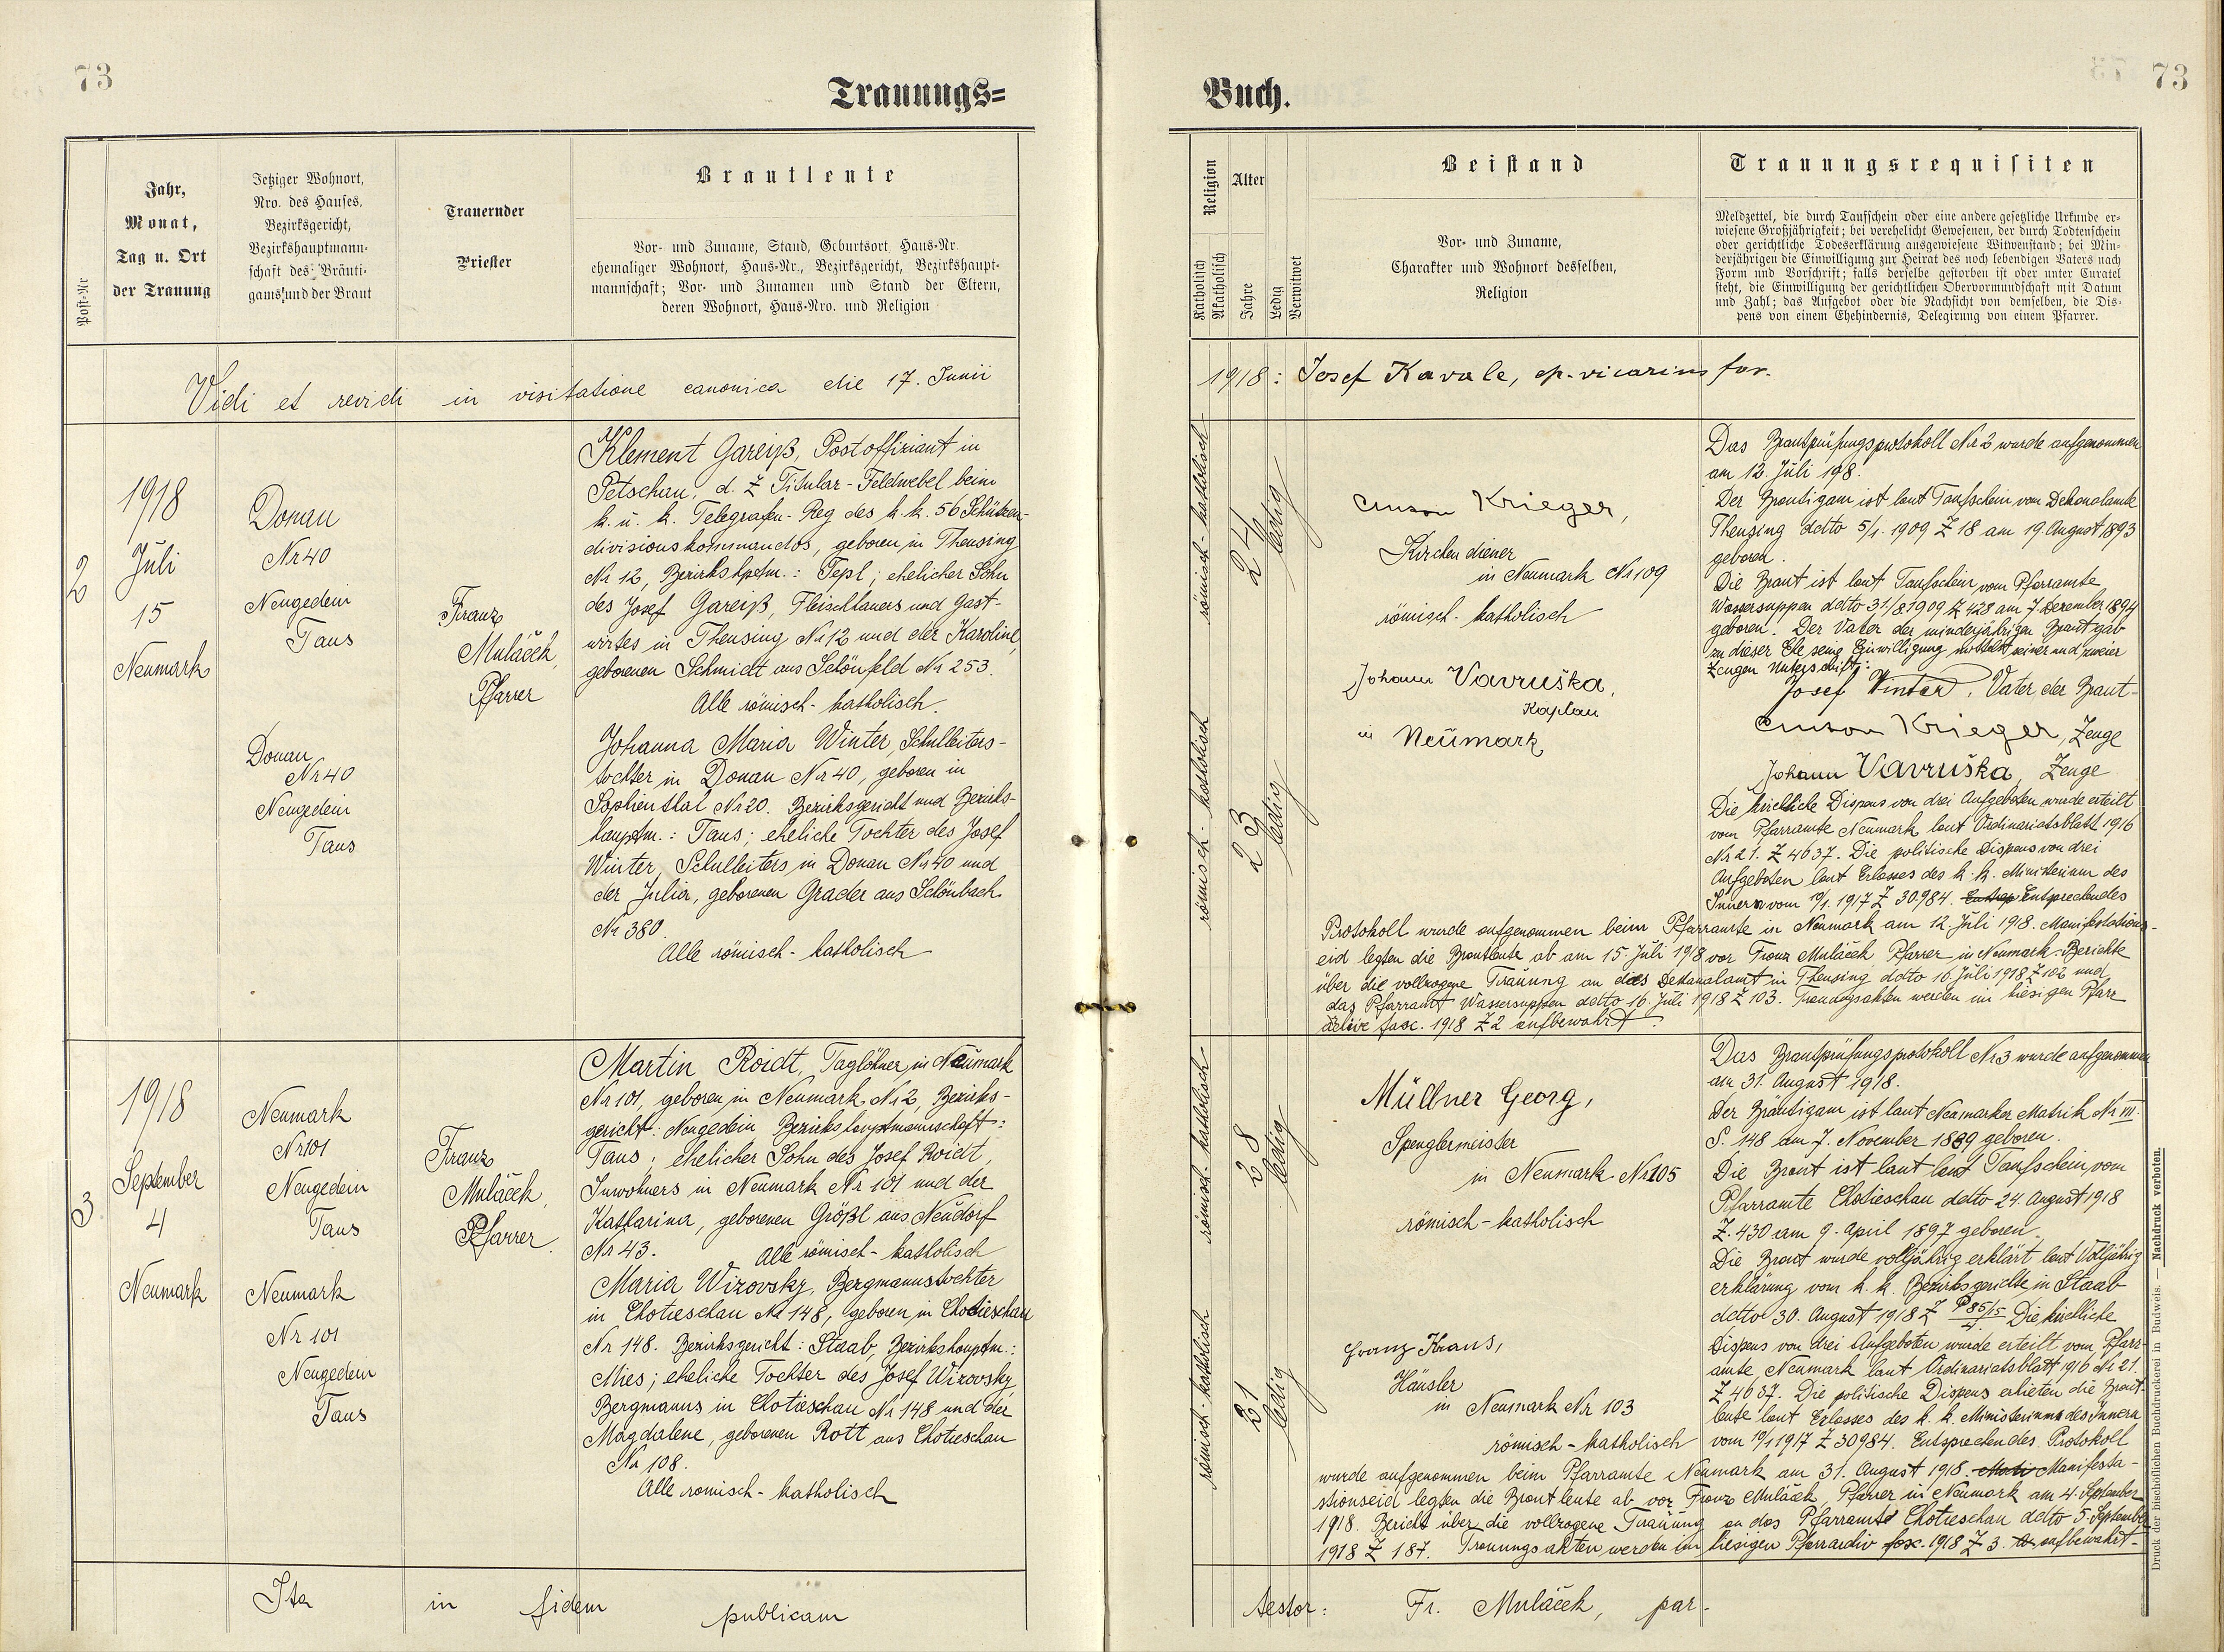 73
Trauungs=
Post-Nr
Jahr,
Monat,
Tag u. Ort
der Trauung
Jetziger Wohnort,
Nro. des Hauses,
Bezirksgericht,
Bezirkshauptmann-
schaft des Bräuti-
gams und der Braut
Trauernder
Priester
Brautleute
Vor- und Zuname, Stand, Geburtsort Haus-Nr.
ehemaliger Wohnort, Haus-Nr., Bezirksgericht, Bezirkshaupt-
mannschaft; Vor- und Zunamen und Stand der Eltern,
deren Wohnort, Haus-Nro. und Religion
Vidi et revidi in visitatione canonica die 17. Junii
2
1918
Juli
15
Neumark
Donau
Nr 40
Neugedein
Taus
Donau
Nr 40
Neugedein
Taus
Franz
Muláček,
Pfarrer
Klement Gareiß, Postoffiziant in
Petschau, d. Z Titular-Feldwebel beim
k. u. k. Telegrafen-Reg des k. k. 56 Schützen-
divisionskommandos, geboren in Theusing
Nr 12, Bezirkshptm.: Tepl; ehelicher Sohn
des Josef Gareiß, Fleischhauers und Gast-
wirtes in Theusing Nr 12 und der Karoline,
geborenen Schmidt aus Schönfeld Nr 253.
Alle römisch-katholisch.
Johanna Maria Winter, Schulleiters-
tochter in Donau Nr 40, geboren in
Sophienthal Nr 20. Bezirksgericht und Bezirks-
hauptm.: Taus; eheliche Tochter des Josef
Winter, Schulleiters in Donau Nr 40 und
der Julia, geborenen Grader aus Schönbach
Nr 380.
Alle römisch-katholisch
3
1918
September
4
Neumark
Neumark
Nr 101
Neugedein
Taus
Neumark
Nr 101
Neugedein
Taus
Franz
Muláček,
Pfarrer.
Martin Roidt, Taglöhner in Neumark
Nr 101, geboren in Neumark Nr 2, Bezirks-
gericht: Neugedein Bezirkshauptmannschaft:
Taus; ehelicher Sohn des Josef Roidt,
Inwohners in Neumark Nr 101 und der
Katharina, geborenen Größl aus Neudorf
Nr 43. Alle römisch-katholisch
Maria Wizovsky, Bergmannstochter
in Chotieschau Nr 148, geboren in Chotieschau
Nr 148. Bezirksgericht: Staab, Bezirkshauptm.:
Mies; eheliche Tochter des Josef Wizovsky
Bergmanns in Chotieschau Nr 148 und der
Magdalene, geborenen Rott aus Chotieschau
Nr 108.
Alle römisch-katholisch
Ita in fidem publicam
73
Buch.
Religion
Katholisch
Akatholisch
Alter
Jahre
Ledig
Verwitwet
Beistand
Vor- und Zuname,
Charakter und Wohnort desselben,
Religion
Trauungsrequisiten
Meldzettel, die durch Taufschein oder eine andere gesetzliche Urkunde er-
wiesene Großjährigkeit; bei verehelicht Gewesenen, der durch Todtenschein
oder gerichtliche Todeserklärung ausgewiesene Witwenstand; bei Min-
derjährigen die Einwilligung zur Heirat des noch lebendigen Vaters nach
Form und Vorschrift; falls derselbe gestorben ist oder unter Curatel
steht, die Einwilligung der gerichtlichen Obervormundschaft mit Datum
und Zahl; das Aufgebot oder die Nachsicht von demselben, die Dis-
pens von einem Ehehindernis, Delegirung von einem Pfarrer.
1918: Josef Kavale, ep. vicarius for.
römisch-katholisch
24
ledig
römisch-katholisch
23
ledig
Krieger,
Kirchendiener
in Neumark Nr 109
römisch-katholisch
Johann Vavruška,
Kaplan
in Neumark
Das Brautprüfungsprotokoll Nr 2 wurde aufgenommen
am 12. Juli 198.
Der Bräutigam ist laut Taufschein vom Dekanalamte
Theusing detto 5/1. 1909 Z 18 am 19. August 1893
geboren.
Die Braut ist laut Taufschein vom Pfarramte
Wassersuppen detto 31/8 1909 Z 428 am 7 Dezember 1894
geboren. Der Vater der minderjährigen Braut gab
zu dieser Ehe seine Einwilligung mittelst seiner und zweier
Zeugen Unterschrift:
Josef Winter, Vater der Braut
Krieger, Zeuge
Johann Vavruška, Zeuge
Die kirchliche Dispens von drei Aufgeboten wurde erteilt
vom Pfarramte Neumark laut Ordinariatsblatt 1916
Nr 21. Z 4637. Die politische Dispens von drei
Aufgeboten laut Erlasses des k. k. Ministerium des
Innern vom 19/1. 1917 Z 30984. Entsprechendes
Protokoll wurde aufgenommen beim Pfarramte in Neumark am 12. Juli 1918. Manifestations-
eid legten die Brautleute ab am 15. Juli 1918 vor Franz Muláček Pfarrer in Neumark. Berichte
über die vollzogene Trauung an das Dekanalamt in Theusing detto 16 Juli 1918 Z 102 und
das Pfarramt Wassersuppen detto 16. Juli 1918 Z 103. Trauungsakten werden im hiesigen Pfarr
fasc. 1918 Z 2 aufbewahrt.
römisch-katholisch
28
ledig
römisch-katholisch
21
ledig
Müllner Georg,
Spenglermeister
in Neumark Nr 105
römisch-katholisch
Franz Kraus,
Häusler
in Neumark Nr 103
römisch-katholisch
Das Brautprüfungsprotokoll Nr 3 wurde aufgenommen
am 31. August 1918.
Der Bräutigam ist laut Neumarker Matrik Nr VII
S. 148 am 7. November 1889 geboren.
Die Braut ist laut laut Taufschein vom
Pfarramte Chotieschau detto 24. August 1918
Z. 430 am 9. April 1897 geboren.
Die Braut wurde volljährig erklärt laut Volljährig
erklärung vom k. k. Bezirksgerichte in Staab
detto 30. August 1918 Z P 85/15 Die kirchliche
Dispens von drei Aufgeboten wurde erteilt vom Pfarr-
amte Neumark laut Ordinariatsblatt 1916 Nr 21.
Z 4637. Die politische Dispens erhielten die Braut-
leute laut Erlasses des k. k. Ministeriums des Innern
vom 19/1 1917 Z 30984. Entsprechendes Protokoll
wurde aufgenommen beim Pfarramte Neumark am 31. August 1918. Manifesta-
tionseid legten die Brautleute ab vor Franz Muláček, Pfarrer in Neumark am 4. September
1918. Bericht über die vollzogene Trauung an das Pfarramt Chotieschau detto 5. September
1918 Z 187. Trauungsakten werden im hiesigen Pfarrarchiv fasc. 1918 Z 3. aufbewahrt.
testor: Fr. Muláček, par.
Druck der bischöflichen Buchdruckerei in Budweis. — Nachdruck verboten.